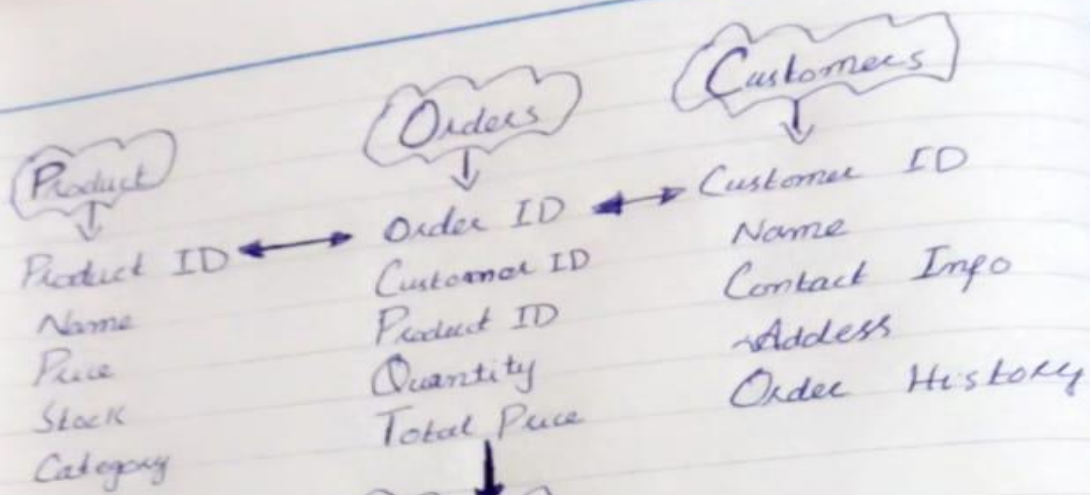 Product
Product ID
Name
Price
Stock
Category
Orders
Order ID
Customer ID
Product ID
Quantity
Total Price
Customers
Customer ID
Name
Contact Info
Addess
Order History